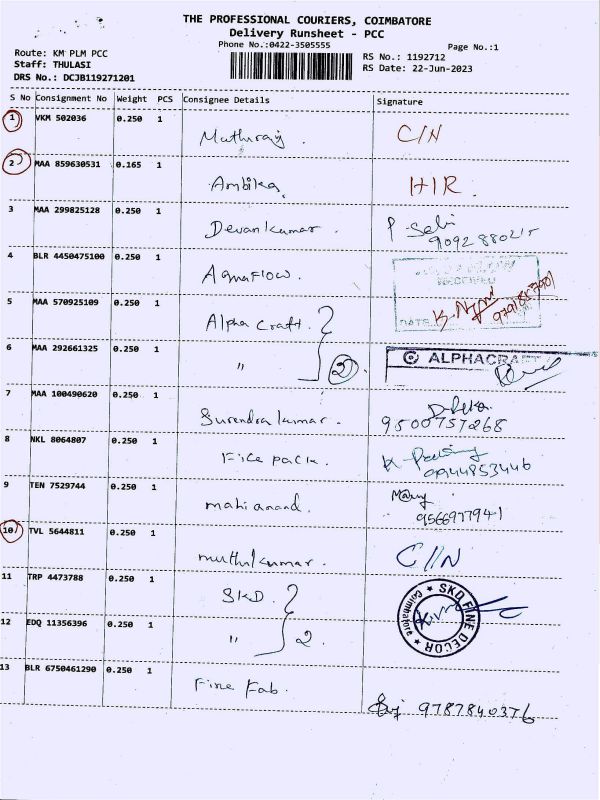 THE PROFESSIONAL COURIERS, COIMBATORE
Delivery Runsheet - PCC
Phone No.:0422-3505555
Page No.:1
Route: KM PLM PCC
Staff: THULASI
DRS No.: DCJB119271201
RS No.: 1192712
RS Date: 22-Jun-2023
S No Consignment No Weight PCS Consignee Details Signature
1 VKM 502036 0.250 1 Muthuraj. C/N
2 MAA 859630531 0.165 1 Ambika, HIR.
3 MAA 299825128 0.250 1 Devankumar. P-Selvi
9092880215
4 BLR 4450475100 0.250 1 Aquaflow.
RECEIVED
9791887901
DATE
5 MAA 570925109 0.250 1 Alpha Craft.
6 MAA 292661325 0.250 1 " 2. ALPHACRAFT
7 MAA 100490620 0.250 1 Surendra kumar.
9500757268
8 NKL 8064807 0.250 1 Fice pack.
09944853446
9 TEN 7529744 0.250 1 mahi anand.
9566977941
10 TVL 5644811 0.250 1 muthukumar. C//N
11 TRP 4473788 0.250 1 SKD.
12 EDQ 11356396 0.250 1 " 2. SKD FINE DECOR
Coimbatore
13 BLR 6750461290 0.250 1 Fine Fab.
9787840376